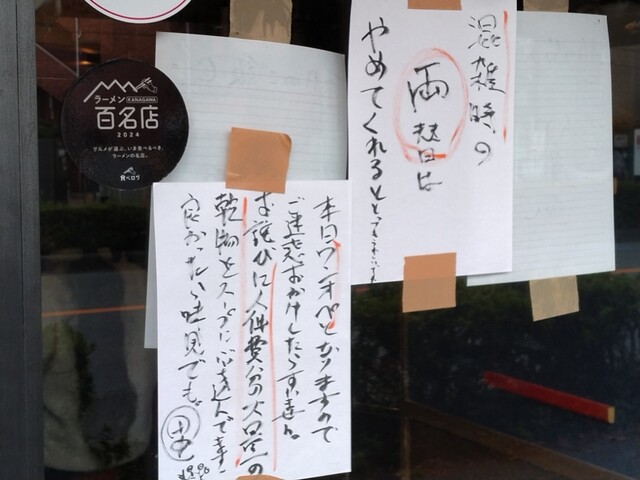 ラーメン KANAGAWA
百名店
2024
グルメが選ぶ、いま食べるべき、
ラーメンの名店。
食べログ
混雑時の
両替は
やめてくれると
本日ワンオペとなりますので
ご迷惑おかけしたらすいません。
お詫びに人件費分の
乾物をスープにぶち込んでます!
良かったら味見でも。